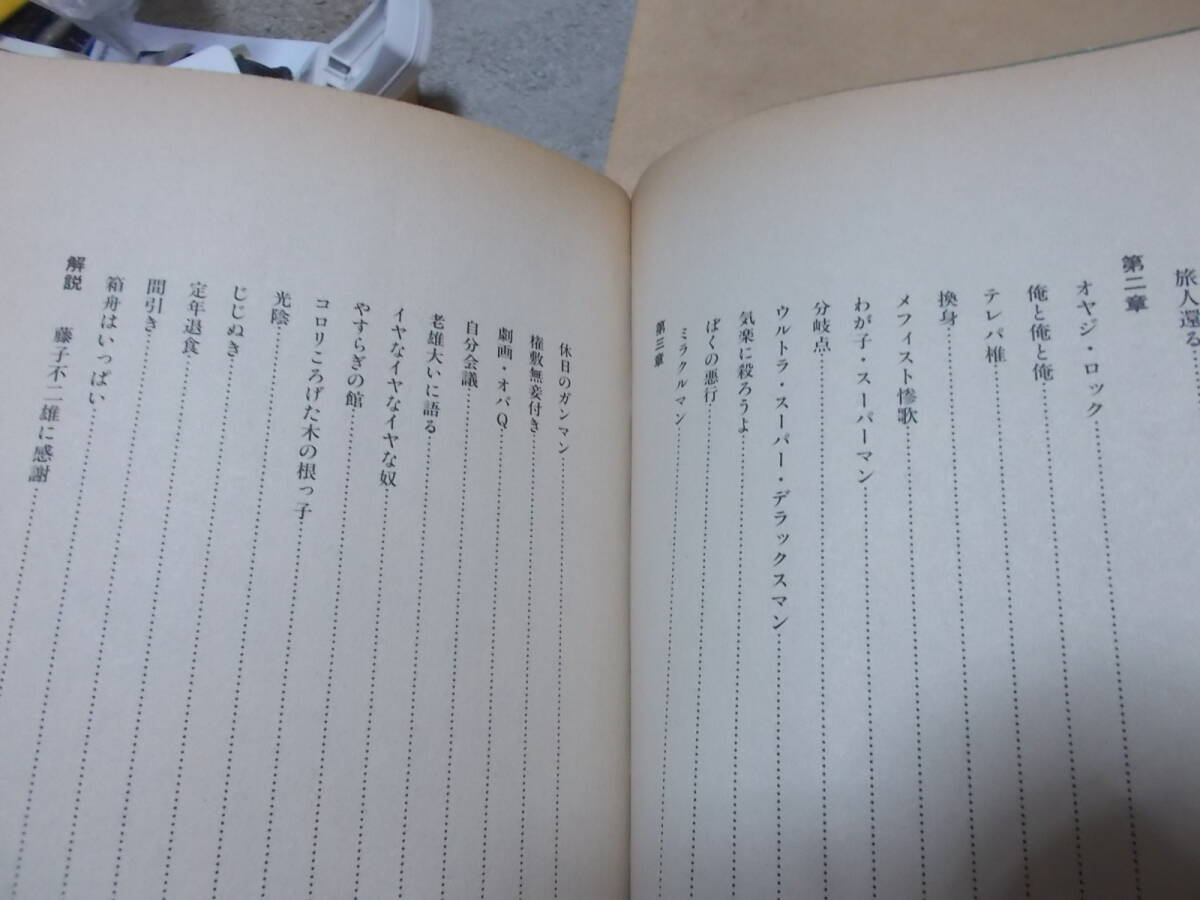 旅人還る……
第二章
オヤジ・ロック……
俺と俺と俺……
テレパ椎……
換身……
メフィスト惨歌……
わが子・スーパーマン……
分岐点……
ウルトラ・スーパー・デラックスマン……
気楽に殺ろうよ……
ぼくの悪行……
ミラクルマン……
第三章
休日のガンマン……
権敷無妾付き……
劇画・オバQ……
自分会議……
老雄大いに語る……
イヤなイヤなイヤな奴……
やすらぎの館……
コロリころげた木の根っ子
光陰……
じじぬき……
定年退食……
間引き……
箱舟はいっぱい……
解説　藤子不二雄に感謝……